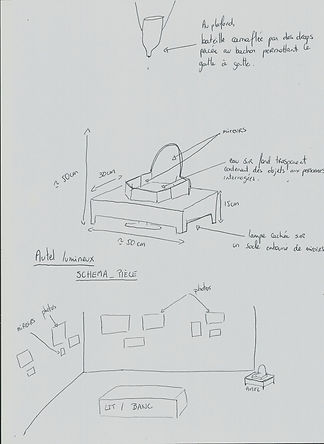 Au plafond,
bouteille camouflée par des draps
percée au bouchon permettant le
goutte à goutte.
miroirs
≃ 50cm
30cm
eau sur fond transparent
contenant des objets aux personnes
interrogées.
15cm
≃ 50cm
lampe cachée sur
un socle entouré de miroirs
Autel lumineux
SCHEMA_PIÈCE
photos
miroirs
photos
AUTEL
LIT / BANC